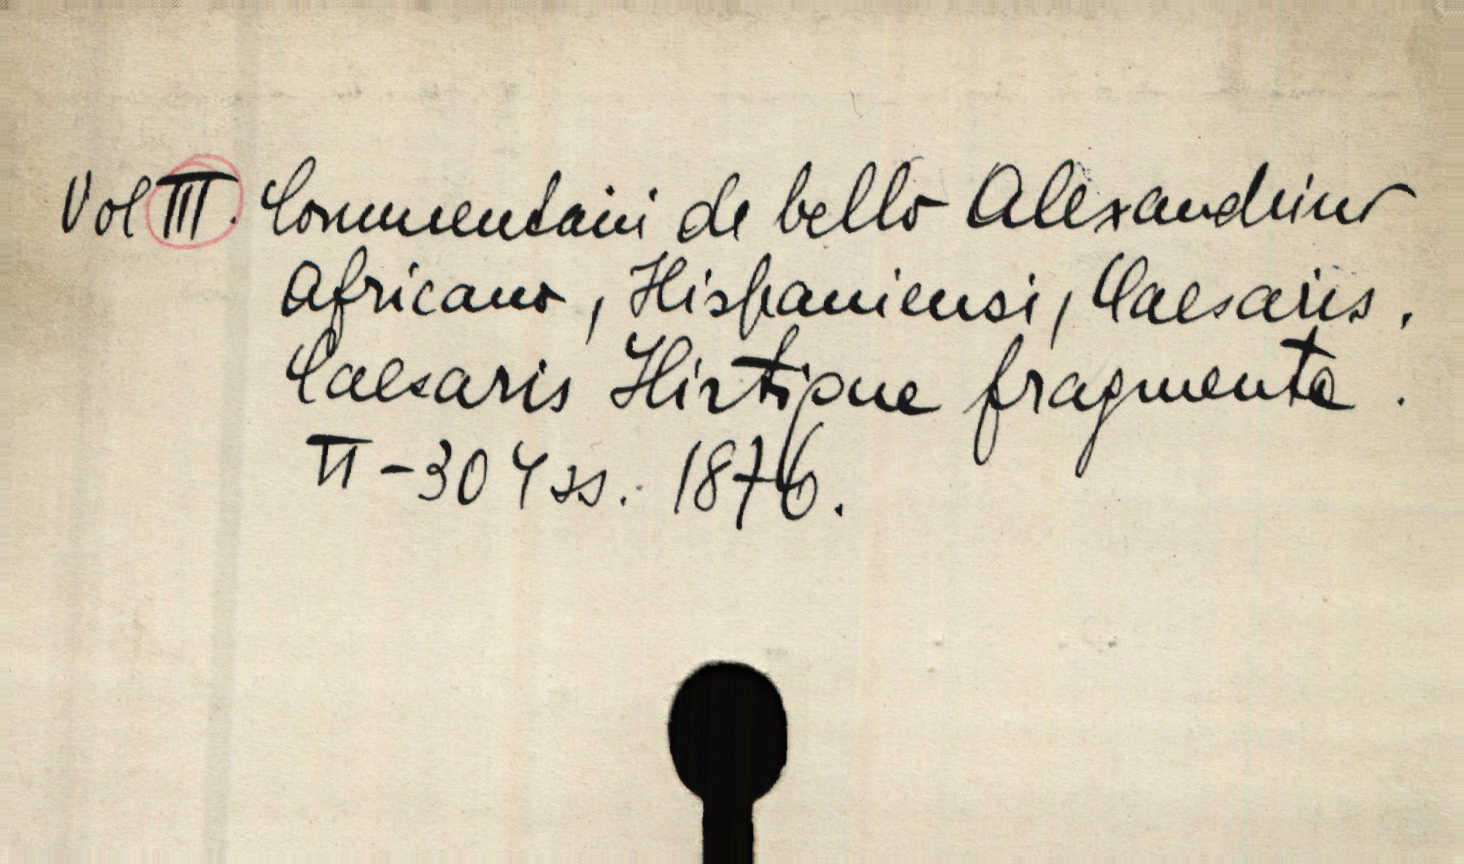 Vol III. Commentarii de bello Alexandrino
Africano, Hispaniensi, Caesaris.
Caesaris Hirtique fragmenta.
II-304 ss. 1876.